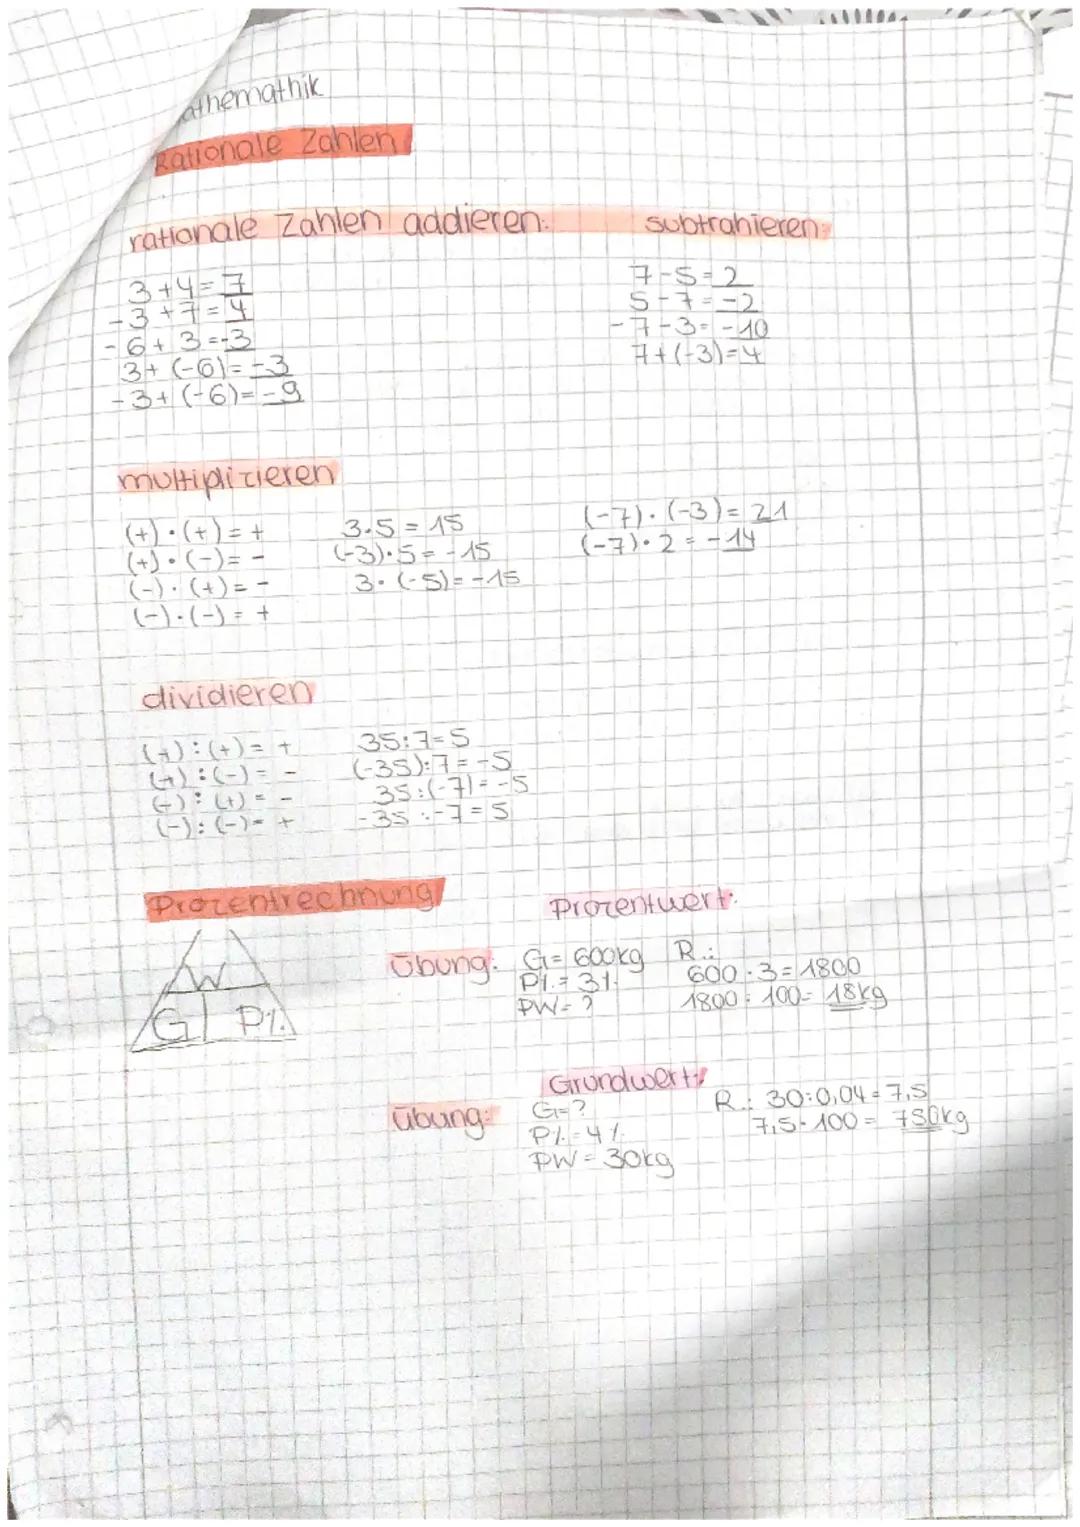 athemathik
Rationale Zahlen
rationale Zahlen addieren: subtrahieren:
3+4=7
-3+7=4
-6+3=-3
3+(-6)=-3
-3+(-6)=-9
7-5=2
5-7=-2
-7-3=-10
7+(-3)=4
multiplizieren
(+)·(+)=+
(+)·(-)=-
(-)·(+)=-
(-)·(-)=+
3·5=15
(-3)·5=-15
3·(-5)=-15
(-7)·(-3)=21
(-7)·2=-14
dividieren
(+):(+)=+
(+):(-)=-
(-):(+)=-
(-):(-)=+
35:7=5
(-35):7=-5
35:(-7)=-5
-35:-7=5
Prozentrechnung
W
G P%
Prozentwert:
Übung: G=600kg
P%=3%
PW=?
R.:
600·3=1800
1800:100=18kg
Grundwert:
Übung: G=?
P%=4%
PW=30kg
R.: 30:0,04=7,5
7,5·100=750kg